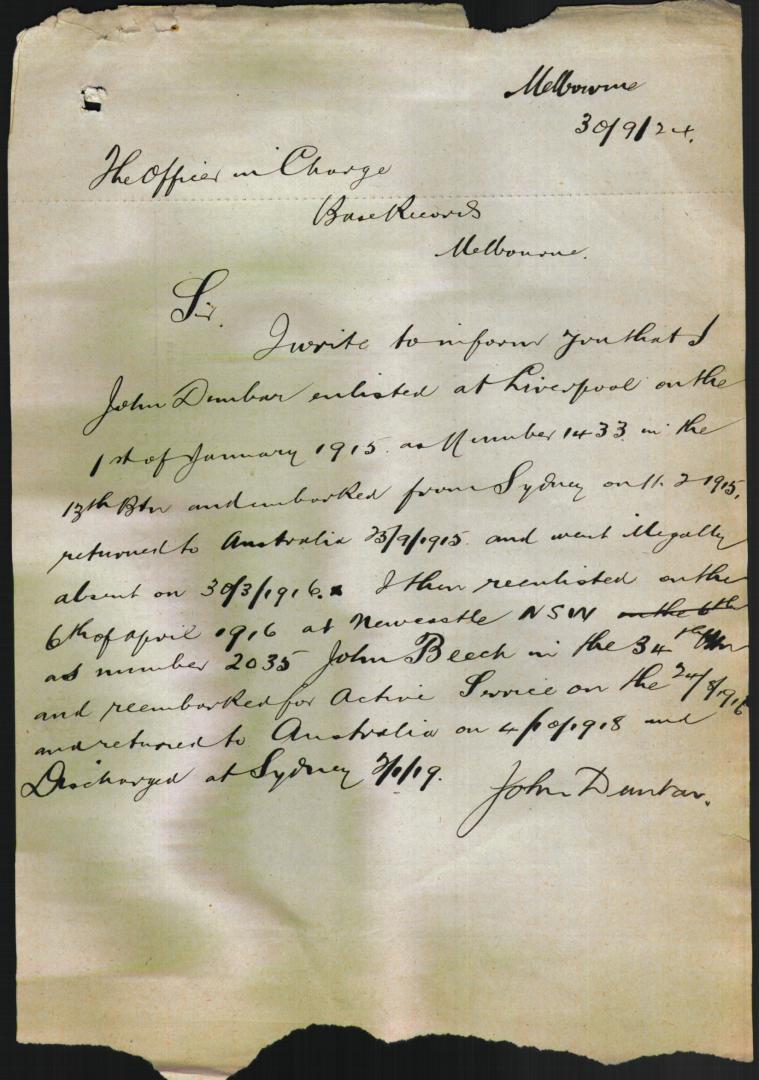 Melbourne
30/9/24.
The Officer in Charge
Base Records
Melbourne.
Sir.
I write to inform you that I
John Dunbar enlisted at Liverpool on the
1st of January 1915. as Number 1433. in the
13th Btn and embarked from Sydney on 11. 2 1915.
returned to Australia 25/9/1915. and went illegally
absent on 30/3/1916. I then reenlisted on the
6th of April 1916 at Newcastle NSW on the 6th
as number 2035 John Beech in the 34th Btn
and reembarked for Active Service on the 24/8/1916
and returned to Australia on 4/10/1918 and
Discharged at Sydney 2/1/19.
John Dunbar.